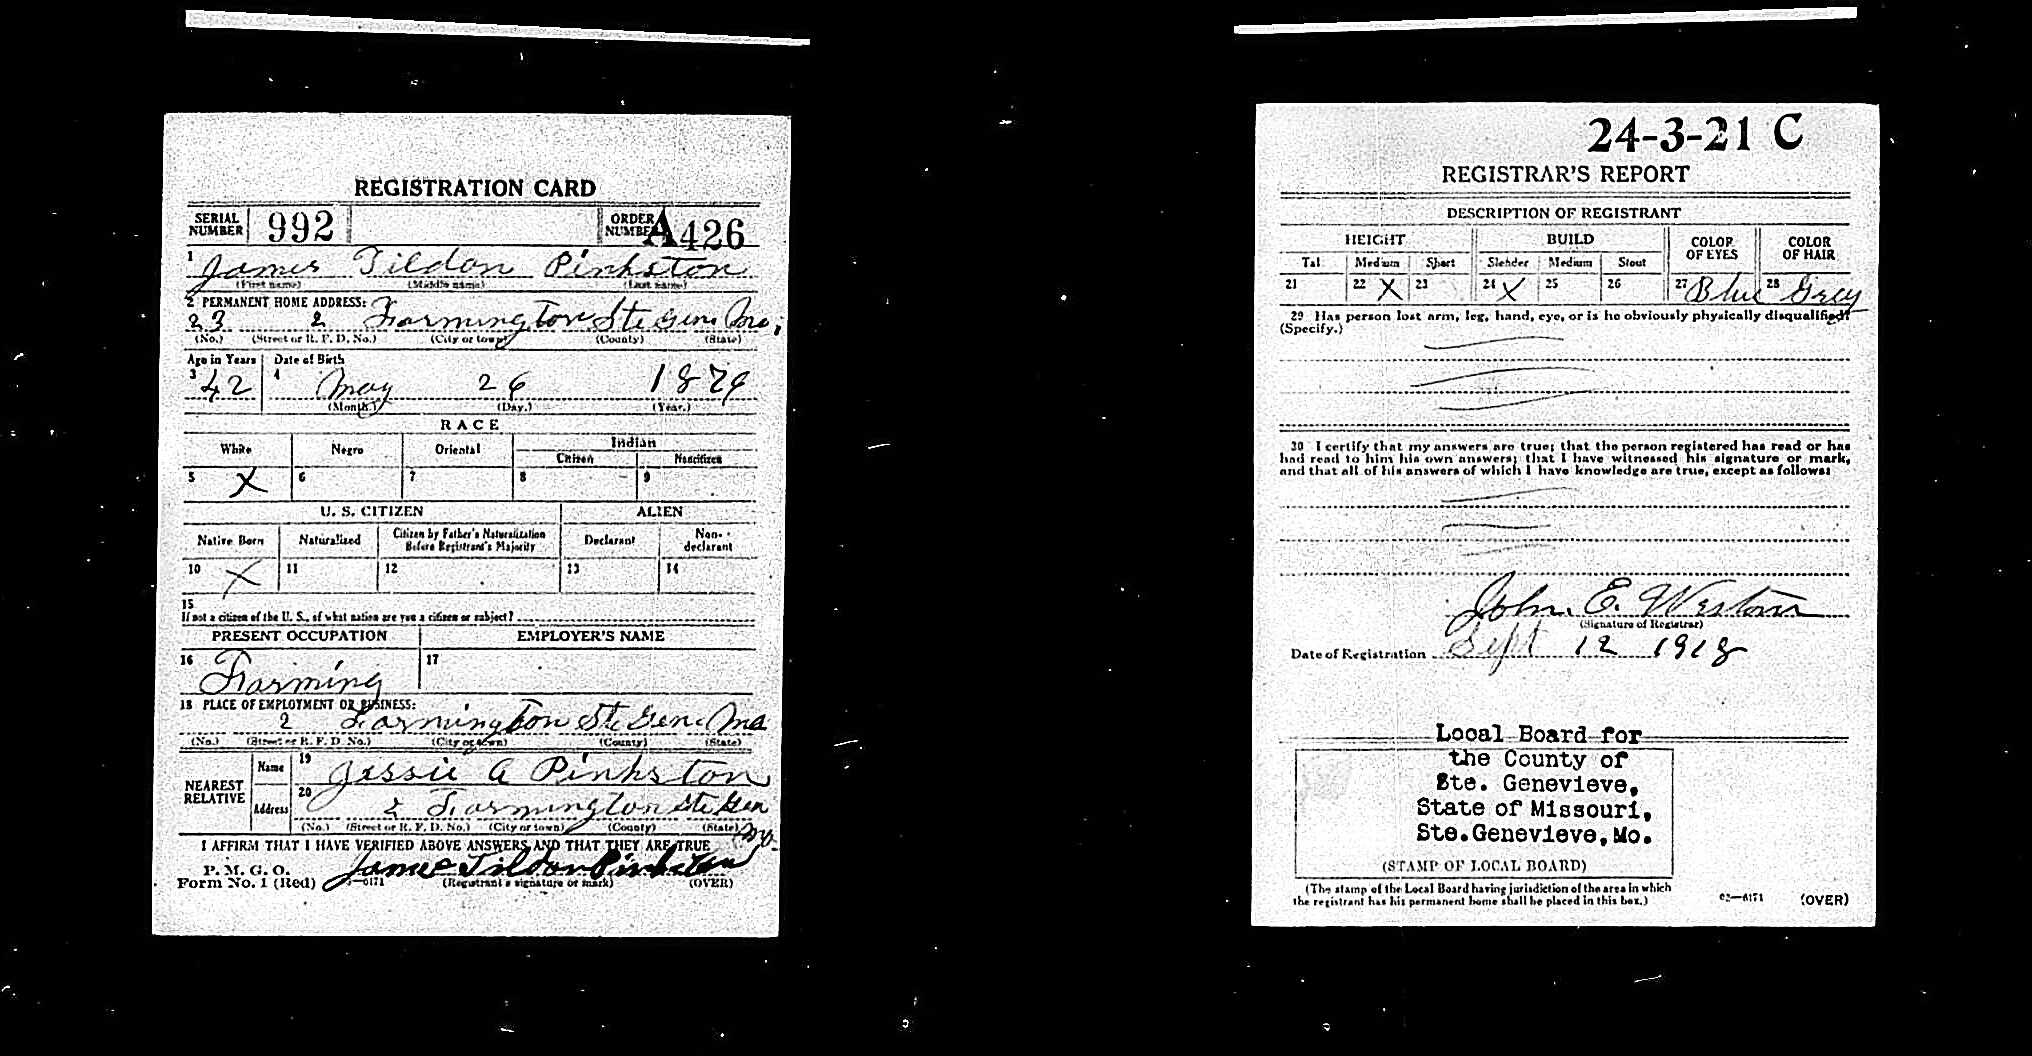 REGISTRATION CARD
SERIAL NUMBER 992 ORDER NUMBER A426
1 James Tildon Pinkston
(First name) (Middle name) (Last name)
2 PERMANENT HOME ADDRESS:
23 2 Farmington Ste Gen. Mo;
(No.) (Street or R. F. D. No.) (City or town) (County) (State)
Age in Years Date of Birth
3 42 4 May 26 1876
(Month.) (Day.) (Year.)
RACE
White Negro Oriental Indian
Citizen Noncitizen
5 X 6 7 8 9
U. S. CITIZEN ALIEN
Native Born Naturalized Citizen by Father's Naturalization Before Registrant's Majority Declarant Non-declarant
10 X 11 12 13 14
15
If not a citizen of the U. S., of what nation are you a citizen or subject?
PRESENT OCCUPATION EMPLOYER'S NAME
16 Farming 17
18 PLACE OF EMPLOYMENT OR BUSINESS:
2 Farmington Ste Gen. Mo
(No.) (Street or R. F. D. No.) (City or town) (County) (State)
NEAREST RELATIVE Name 19 Jessie A Pinkston
Address 20 2 Farmington Ste Gen Mo.
(No.) (Street or R. F. D. No.) (City or town) (County) (State)
I AFFIRM THAT I HAVE VERIFIED ABOVE ANSWERS AND THAT THEY ARE TRUE
P. M. G. O.
Form No. 1 (Red) James Tildon Pinkston
(Registrant's signature or mark) (OVER)
24-3-21 C
REGISTRAR'S REPORT
DESCRIPTION OF REGISTRANT
HEIGHT BUILD COLOR OF EYES COLOR OF HAIR
Tall Medium Short Slender Medium Stout
21 22 X 23 24 X 25 26 27 Blue 28 Grey
29 Has person lost arm, leg, hand, eye, or is he obviously physically disqualified?
(Specify.)
30 I certify that my answers are true; that the person registered has read or has
had read to him his own answers; that I have witnessed his signature or mark,
and that all of his answers of which I have knowledge are true, except as follows:
John E. Weston
(Signature of Registrar)
Date of Registration Sept 12 1918
Local Board for
the County of
Ste. Genevieve,
State of Missouri,
Ste.Genevieve,Mo.
(STAMP OF LOCAL BOARD)
(The stamp of the Local Board having jurisdiction of the area in which
the registrant has his permanent home shall be placed in this box.)
(OVER)